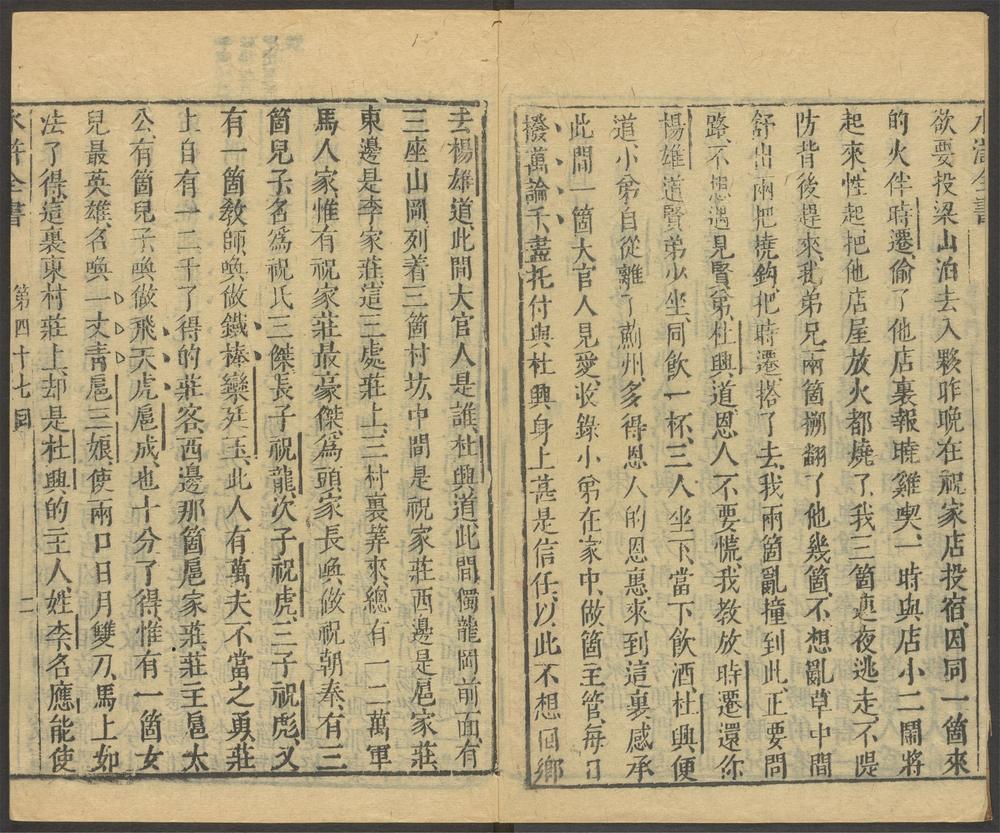 水滸全書
欲要投梁山泊去入夥昨晚在祝家店投宿因同一箇來
的火伴時遷偷了他店裏報曉雞喫一時與店小二鬧將
起來性起把他店屋放火都燒了我三箇連夜逃走不隄
防背後趕來我弟兄兩箇搠翻了他幾箇不想亂草中間
舒出兩把撓鈎把時遷搭了去我兩箇亂撞到此正要問
路不想遇見賢弟杜興道恩人不要慌我教放時遷還你
楊雄道賢弟少坐同飲一杯三人坐下當下飲酒杜興便
道小弟自從離了薊州多得恩人的恩惠來到這裏感承
此間一箇大官人見愛收錄小弟在家中做箇主管每日
撥萬論千盡托付與杜興身上甚是信任以此不想回鄉
去楊雄道此間大官人是誰杜興道此間獨龍岡前面有
三座山岡列着三箇村坊中間是祝家莊西邊是扈家莊
東邊是李家莊這三處莊上三村裏算來總有一二萬軍
馬人家惟有祝家莊最豪傑爲頭家長喚做祝朝奉有三
箇兒子名爲祝氏三傑長子祝龍次子祝虎三子祝彪又
有一箇教師喚做鐵棒欒廷玉此人有萬夫不當之勇莊
上自有一二千了得的莊客西邊那箇扈家莊莊主扈太
公有箇兒子喚做飛天虎扈成也十分了得惟有一箇女
兒最英雄名喚一丈青扈三娘使兩口日月雙刀馬上如
法了得這裏東村莊上却是杜興的主人姓李名應能使
水滸全書 第四十七回 二